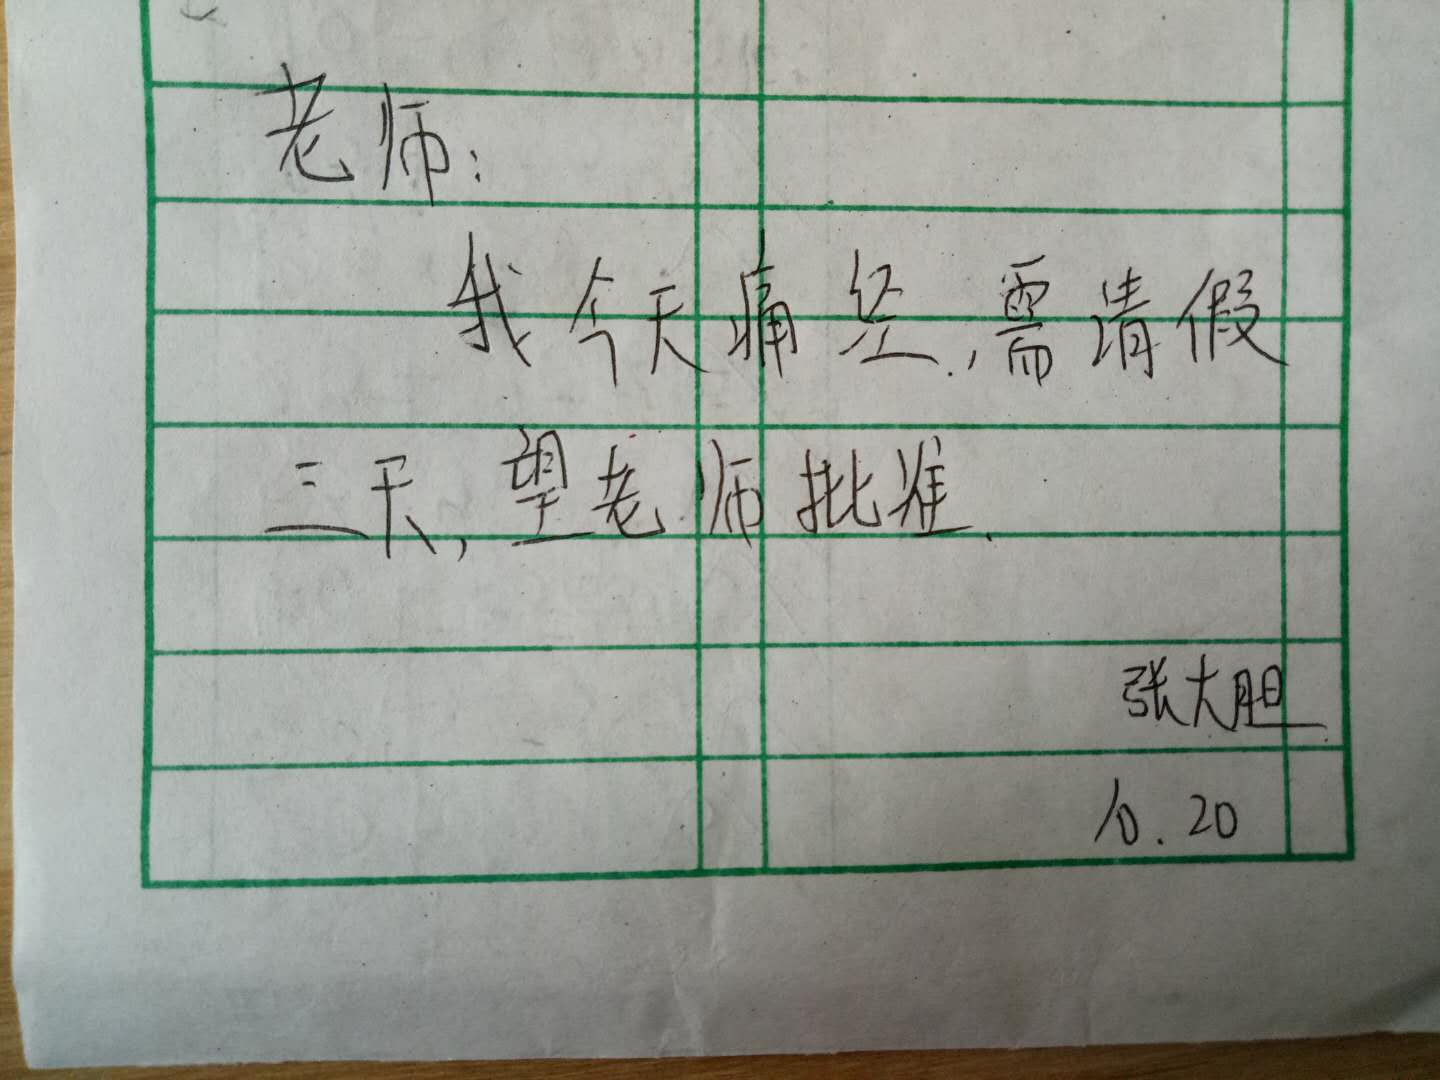 老师:
我今天痛经.,需请假
三天,望老师批准.
张大胆
10.20